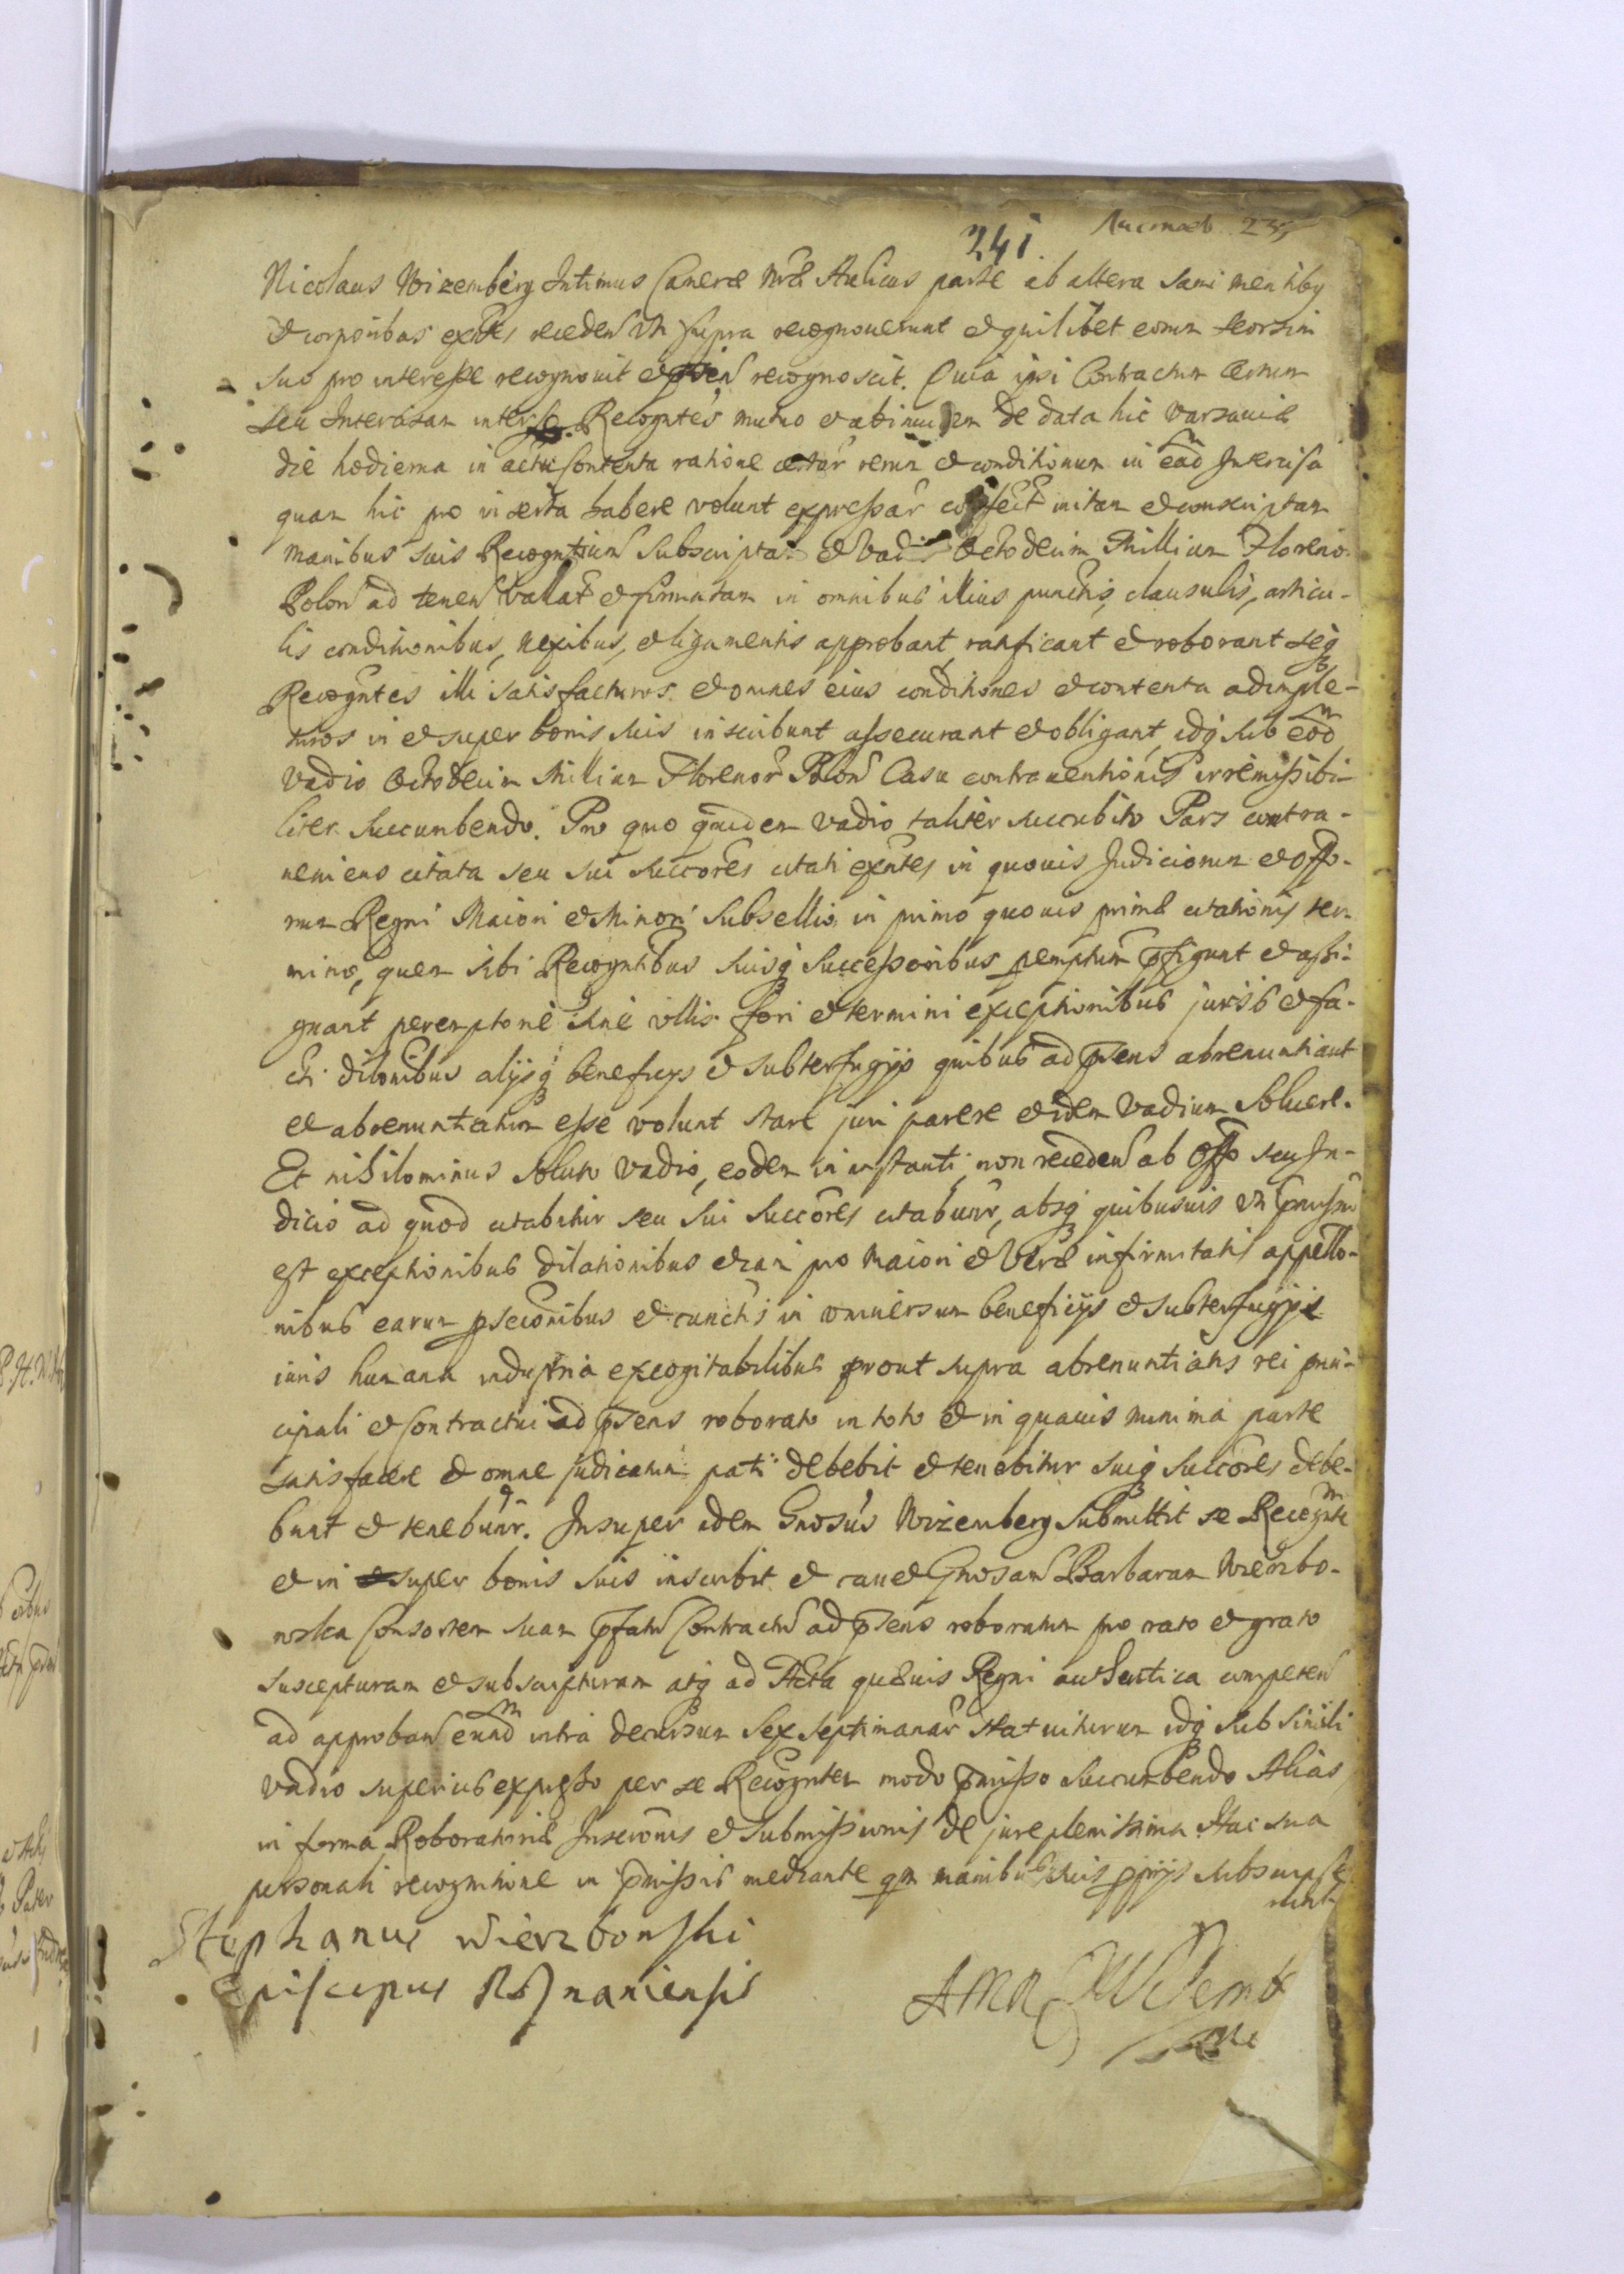 241
Листовъ 235
Nicolaus Wizemberg Intimus Cameræ Nræ Aulicus parte ab altera sani mentibq
et corporibus exñtes receden̄ Vt supra recognouerunt et quilibet eorum seorsim
suo pro interesse recognouit et recognoscit. Quia ipsi Contractum certum
seu Intercisam inter se Recogntes mutuo et ab inuicem de data hic Varsauiæ
die hodierna in actu contenta ratione certar rerum et conditionum in ead Intercisa
quam hic pro inserta habere volunt expressar confect initam et conscriptam
manibus suis Recogntium subscriptam et Vadio Octodecim Millium Floreno
Polon ad tenen Vallat et firmatam in omnibus illius punctis, clausulis, articu-
lis conditionibus, nexibus, et ligamentis approbant ratificant et roborant seq
Recogntes illi satisfacturos et omnes eius conditiones et contenta adimple-
turos in et super bonis suis inscribunt assecurant et obligant, idq sub eod
vadio Octodecim Millium Florenor Polon Casu contrauentionis irremissibi-
liter succumbendo. Pro quo quidem vadio taliter succubito Pars contra-
ueniens citata seu sui succores citati exñtes in quouis Judiciorum et offo-
rum Regni Maiori et Minori Subsellio in primo quouis primæ citationis ter-
mino, quem sibi Recogntibus suisq successoribus pemptum pfigunt et assi-
gnant peremptorie sine vllis fori et termini exceptionibus juris et fa-
cti dilonibus alijsq beneficijs et subterfugijs quibus ad psens abrenuntiant
et abrenuntiatum esse volunt stare juri parere et idem Vadium Soluere.
Et nihilominus soluto vadio, eodem in instanti, non receden ab Offo seu Ju-
dicio ad quod citabitur seu sui succores citabunr, absq quibusuis vt pmissum
est exceptionibus dilationibus etiam pro Maiori et Veræ infirmitatis appello-
nibus earum psecōnibus et cunctis in vniuersum beneficijs et subterfugijs
iuris humana industria excogitabilibus prout supra abrenuntiatis rei prin-
cipali et Contractui ad psens roborato in toto et in quauis minima parte
satisfacere et omne judicatum pati debebit et tenebitur suiq succores debe-
bunt et tenebunr. Insuper idem Gnosus Wizemberg submittit se Recognte
et in super bonis suis inscribit et cauet Gnosam Barbaram Wierzbo-
wska Consortem suam pfatu Contractu ad psens roboratum pro rato et grato
suscepturam et subscripturam atq ad Acta quæuis Regni authentica competen
ad approban eund intra decursum sex septimanar statuiturum idq sub simili
vadio superius expresso per se Recogntem modo pmisso succumbendo Alias
in forma Roborationis Inscrionis et submissionis de jure plenissima Stat sua
personali recognitione in pmissis mediante qm manibus suis pprijs subscripse
runt
Stephanus Wierzbowski
Episcopus Posnaniensis